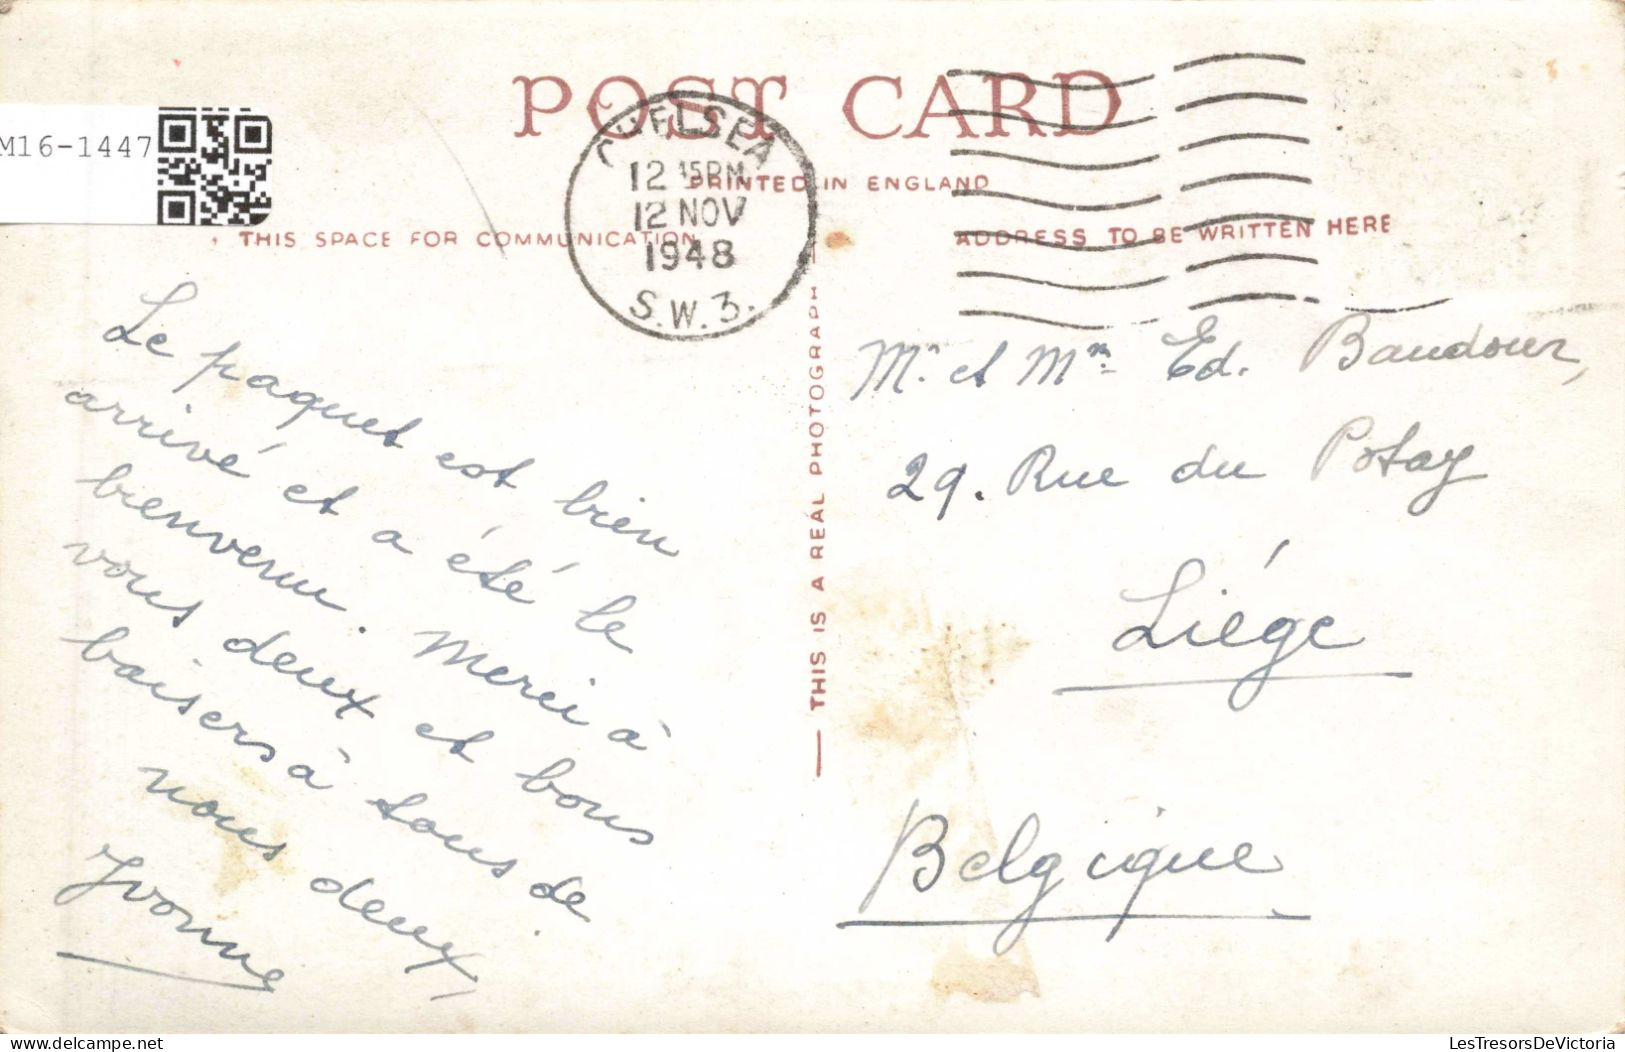 POST CARD
M16-1447
CHELSEA
12 15PM
12 NOV
1948
S.W.3.
PRINTED IN ENGLAND
THIS SPACE FOR COMMUNICATION
ADDRESS TO BE WRITTEN HERE
Le paquet est bien
arrivé et a été le
bienvenu. Merci à
vous deux et bons
baisers à tous de
nous deux,
Yvonne
THIS IS A REAL PHOTOGRAPH
Mr. et Mm Ed. Baudoux,
29. Rue du Potay
Liége
Belgique
delcampe.net
LesTresorsDeVictoria